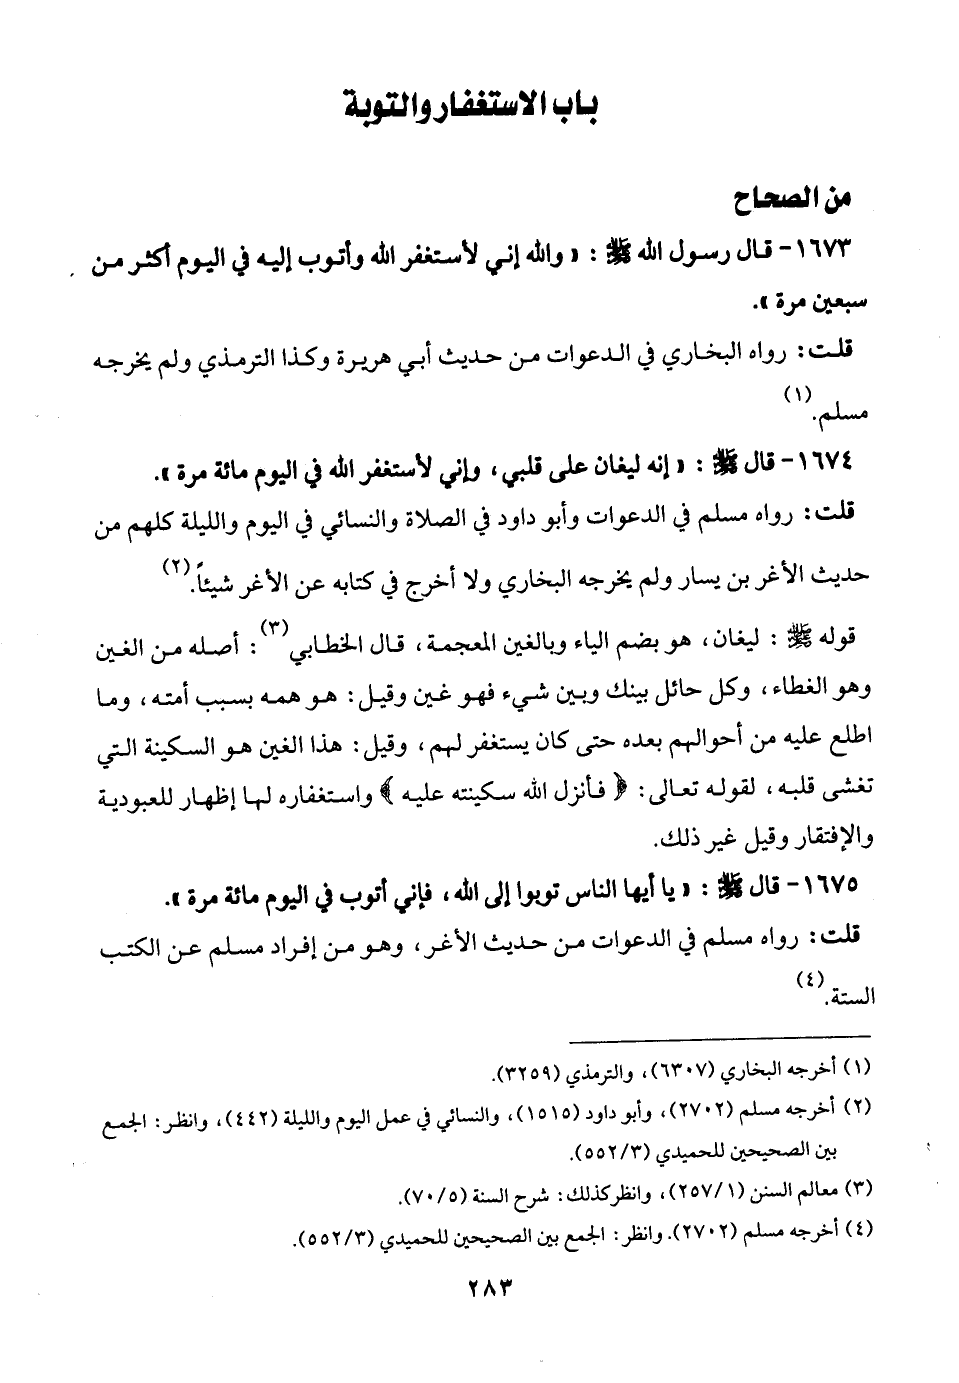 باب الاستغفار والتوبة
من الصحاح
١٦٧٣- قال رسول الله ﷺ : « والله إني لأستغفر الله وأتوب إليه في اليوم أكثر من
سبعين مرة ».
قلت: رواه البخاري في الدعوات من حديث أبي هريرة وكذا الترمذي ولم يخرجه
مسلم.(١)
١٦٧٤- قال ﷺ : « إنه ليغان على قلبي، وإني لأستغفر الله في اليوم مائة مرة ».
قلت: رواه مسلم في الدعوات وأبو داود في الصلاة والنسائي في اليوم والليلة كلهم من
حديث الأغر بن يسار ولم يخرجه البخاري ولا أخرج في كتابه عن الأغر شيئاً.(٢)
قوله ﷺ : ليغان، هو بضم الياء وبالغين المعجمة، قال الخطابي(٣) : أصله من الغين
وهو الغطاء، وكل حائل بينك وبين شيء فهو غين وقيل: هو همه بسبب أمته، وما
اطلع عليه من أحوالهم بعده حتى كان يستغفر لهم، وقيل: هذا الغين هو السكينة التي
تغشى قلبه، لقوله تعالى: ﴿ فأنزل الله سكينته عليه ﴾ واستغفاره لها إظهار للعبودية
والإفتقار وقيل غير ذلك.
١٦٧٥- قال ﷺ : « يا أيها الناس توبوا إلى الله، فإني أتوب في اليوم مائة مرة ».
قلت: رواه مسلم في الدعوات من حديث الأغر، وهو من إفراد مسلم عن الكتب
الستة.(٤)
(١) أخرجه البخاري (٦٣٠٧)، والترمذي (٣٢٥٩).
(٢) أخرجه مسلم (٢٧٠٢)، وأبو داود (١٥١٥)، والنسائي في عمل اليوم والليلة (٤٤٢)، وانظر: الجمع
بين الصحيحين للحميدي (٥٥٢/٣).
(٣) معالم السنن (٢٥٧/١)، وانظر كذلك: شرح السنة (٧٠/٥).
(٤) أخرجه مسلم (٢٧٠٢). وانظر: الجمع بين الصحيحين للحميدي (٥٥٢/٣).
٢٨٣